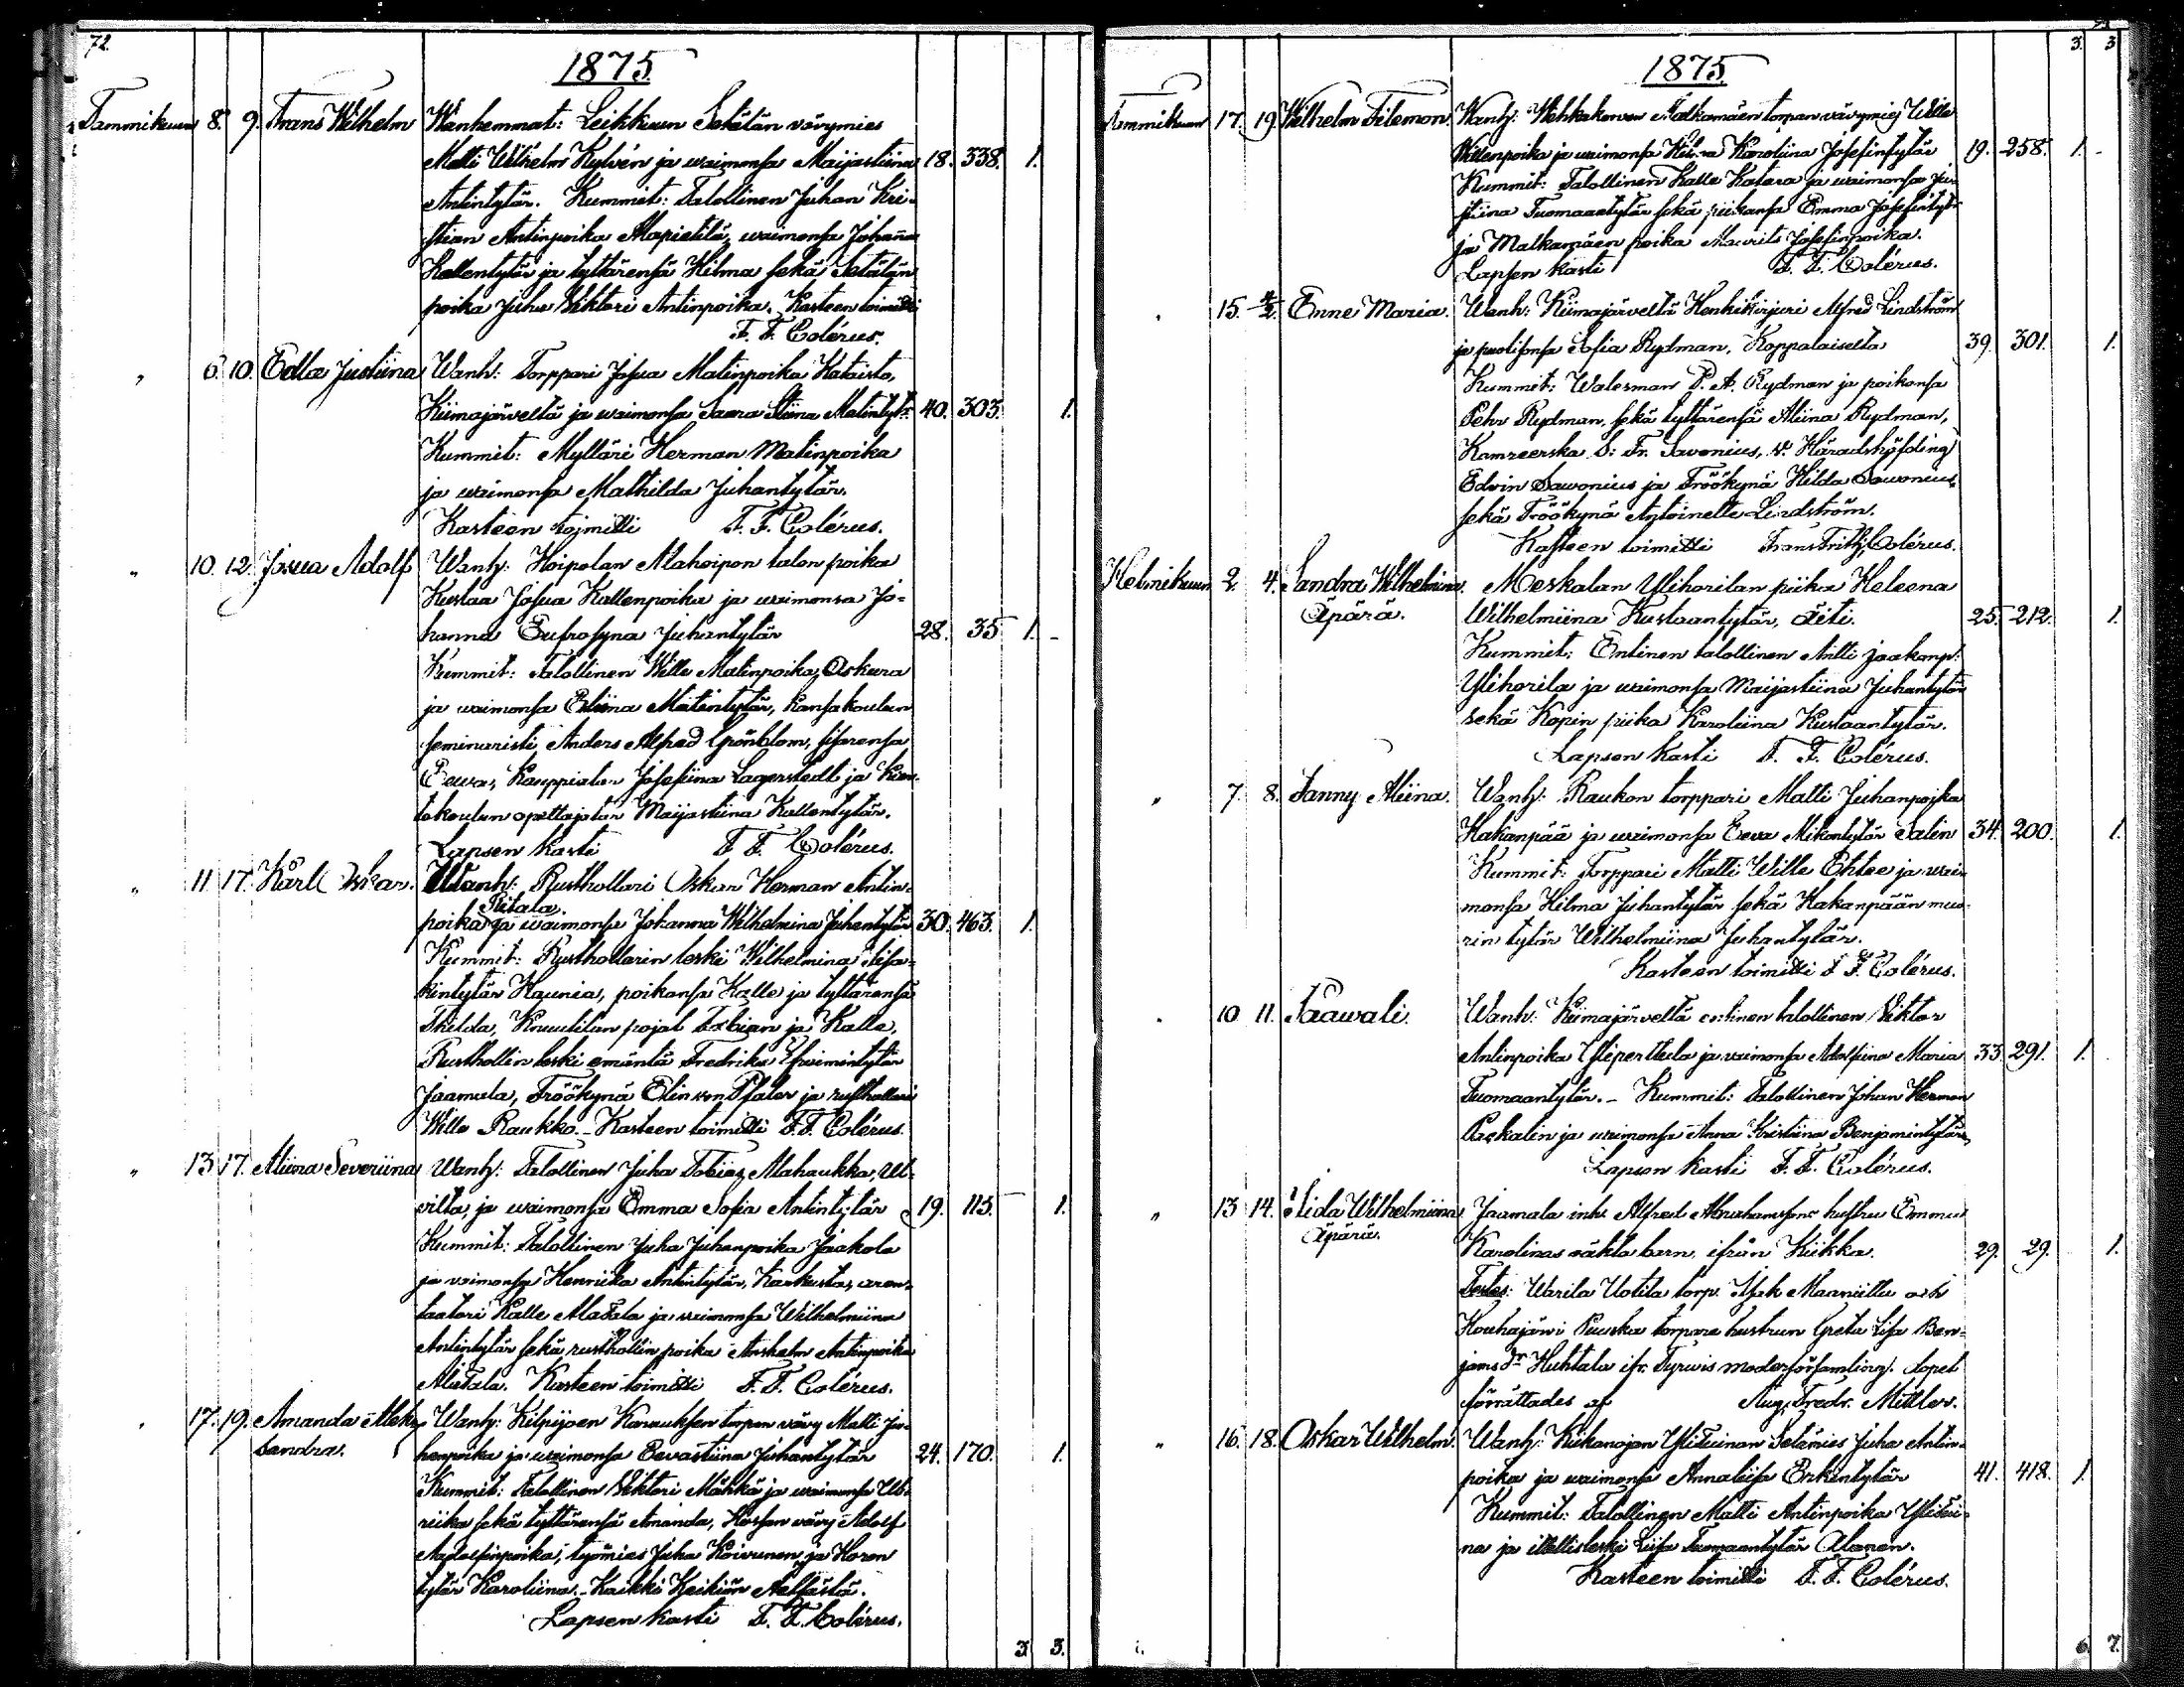 72.
1875.
Tammikuun 8. 9. Frans Wilhelm Wanhemmat: Leikkuun Setälän vävymies
Matti Wilhelm Kylvén ja waimonsa Maijastiina 18. 338. 1.
Antintytär. Kummit: Talollinen Juhan Kri-
stian Antinpoika Alapietilä, waimonsa Johanna
Kallentytär ja tyttärensä Hilma sekä Setälän
poika Juha Viktori Antinpoika. Kasteen toimitti
F. F. Colérus.
" 6. 10. Edla Justiina Wanh: Torppari Josua Matinpoika Kataisto,
Kiimajärveltä ja waimonsa Saara Stiina Matintytr. 40. 303. 1.
Kummit: Mylläri Herman Matinpoika
ja waimonsa Mathilda Juhantytär.
Kasteen toimitti F. F. Colérus.
" 10. 12. Josua Adolf Wanh: Hoipolan Alahoipon talon poika
Kustaa Josua Kallenpoika ja waimonsa Jo-
hanna Eufrosyna Juhantytär 28. 35 1. -
Kummit: Talollinen Wille Matinpoika Oskura
ja waimonsa Eliina Matintytär, Kansakoulun
seminaristi Anders Alfred Grönblom, sisarensa
Eewa, Kauppiatar Josefiina Lagerstedt ja Kier-
tokoulun opettajatar Maijastiina Kallentytär.
Lapsen kasti F. F. Colérus.
" 11. 17. Karl Oskar. Wanh: Rusthollari Oskar Herman Antin-
Ritala.
poika ja waimonsa Johanna Wilhelmina Juhantytär 30. 463. 1.
Kummit: Rusthollarin leski Wilhelmina Iisa-
kintytär Haunia, poikansa Kalle ja tyttärensä
Thilda, Knuutilan pojat Fabian ja Kalle,
Rusthollin leski emäntä Fredrika Efraimintytär
Jaamala, Fröökynä Elin von Pfaler ja rusthollari
Wille Raukko. - Kasteen toimitti F. F. Colérus.
" 13 17. Aliina Severiina Wanh: Talollinen Juha Tobias Alahaukka, Ul-
vilta, ja waimonsa Emma Sofia Antintytär 19. 115. 1.
Kummit: Talollinen Juha Juhanpoika Jaakola
ja vaimonsa Henriika Antintytär, Karkusta, aren-
taatori Kalle Alatala ja waimonsa Wilhelmiina
Antintytär sekä rusthollin poika Anshelm Antinpoika
Alatala. Kasteen toimitti F. F. Colérus.
" 17. 19. Amanda Alek- Wanh: Kilpijoen Karauksen torpan vävy Matti Ju-
sandra. hanpoika ja waimonsa Eevastiina Juhantytär 24. 170. 1.
Kummit: Talollinen Viktori Mähkä ja waimonsa Ul-
riika sekä tyttärensä Amanda, Horsan vävy Adolf
Aadolfinpoika, työmies Juha Koivunen ja Horen
tytär Karoliina. - Kaikki Keikiän
Lapsen kasti F. F. Colérus.
3. 3.
3. 3
1875.
Tammikuun 17. 19. Wilhelm Filemon. Wanh: Wehkakorven Matkamäen torpan vävymies Wille
Willenpoika ja waimonsa Karoliina Josefintytär 19. 258. 1. -
Kummit: Talollinen Kalle Katara ja waimonsa Ju-
stiina Tuomaantytär sekä piikansa Emma Josefintytr
ja Matkamäen poika Maurits Josefinpoika.
Lapsen kasti F. F. Colérus.
" 15. Enne Maria. Wanh: Kiimajärveltä Henkikirjuri Alfred Lindström
ja puolisonsa Sofia Rydman, Koppalaiselta 39. 301. 1.
Kummit: Walesman P. A. Rydman ja poikansa
Pehr Rydman, sekä tyttärensä Aliina Rydman,
Kamreerska S: Fr. Savonius, v. Häradshöfding
Edvin Sawonius ja Fröökynä Hilda Sawonius,
sekä Fröökynä Antoinette Lindström.
Kasteen toimitti Frans Frith: Colérus.
Helmikuun 2. 4. Sandra Wilhelmina. Meskalan Ylihorilan piika Heleena
Äpärä. Wilhelmiina Kustaantytär, äiti. 25. 212. 1.
Kummit: Entinen talollinen Antti Jaakonp:
Ylihorila ja waimonsa Maijastiina Juhantytär
sekä Kopin piika Karoliina Kustaantytär.
Lapsen kasti F. F. Colérus.
" 7. 8. Fanny Aliina. Wanh: Raukon torppari Matti Juhanpoika
Hakanpää ja waimonsa Eeva Mikontytär Salin 34. 200. 1.
Kummit: Torppari Matti Wille Ehtee ja wai-
monsa Hilma Juhantytär sekä Hakanpään muo-
rin tytär Wilhelmiina Juhantytär.
Kasteen toimitti F. F. Colérus.
" 10 11. Paawali. Wanh: Kiimajärveltä entinen talollinen Viktor
Antinpoika Yliperttula ja vaimonsa Adolfiina Maria 33. 291. 1.
Tuomaantytär. - Kummit: Talollinen Johan Herman
Packalin ja waimonsa Anna Kristiina Benjamintytär.
Lapsen kasti F. F. Colérus.
" 13 14. Iida Wilhelmiina Jaamala inh. Alfred Abrahamssons hustru Emma
Äpärä. Karolinas oäkta barn, ifrån Kiikka. 29. 29. 1.
Testes: Warila Uotila torp. Isak Maaniittu och
Houhajärvi Puuska torpare hustrun Greta Lisa Ben-
jams dr Huhtala ifr. Tyrvis moderförsamling. dopet
förrättades af Aug. Fredr. Mittler.
" 16. 18. Oskar Wilhelm. Wanh: Kiikanojan Ylituinan Setämies Juha Antin-
poika ja waimonsa Annaliisa Erkintytär 41. 418. 1.
Kummit: Talollinen Matti Antinpoika Ylitui-
na ja itellisleski Liisa Tuomaantytär Alanen.
Kasteen toimitti F. F. Colérus.
6. 7.